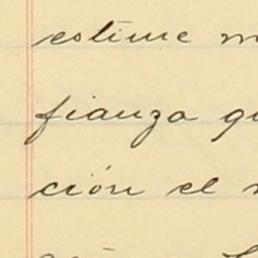 estime
fianza
ción el